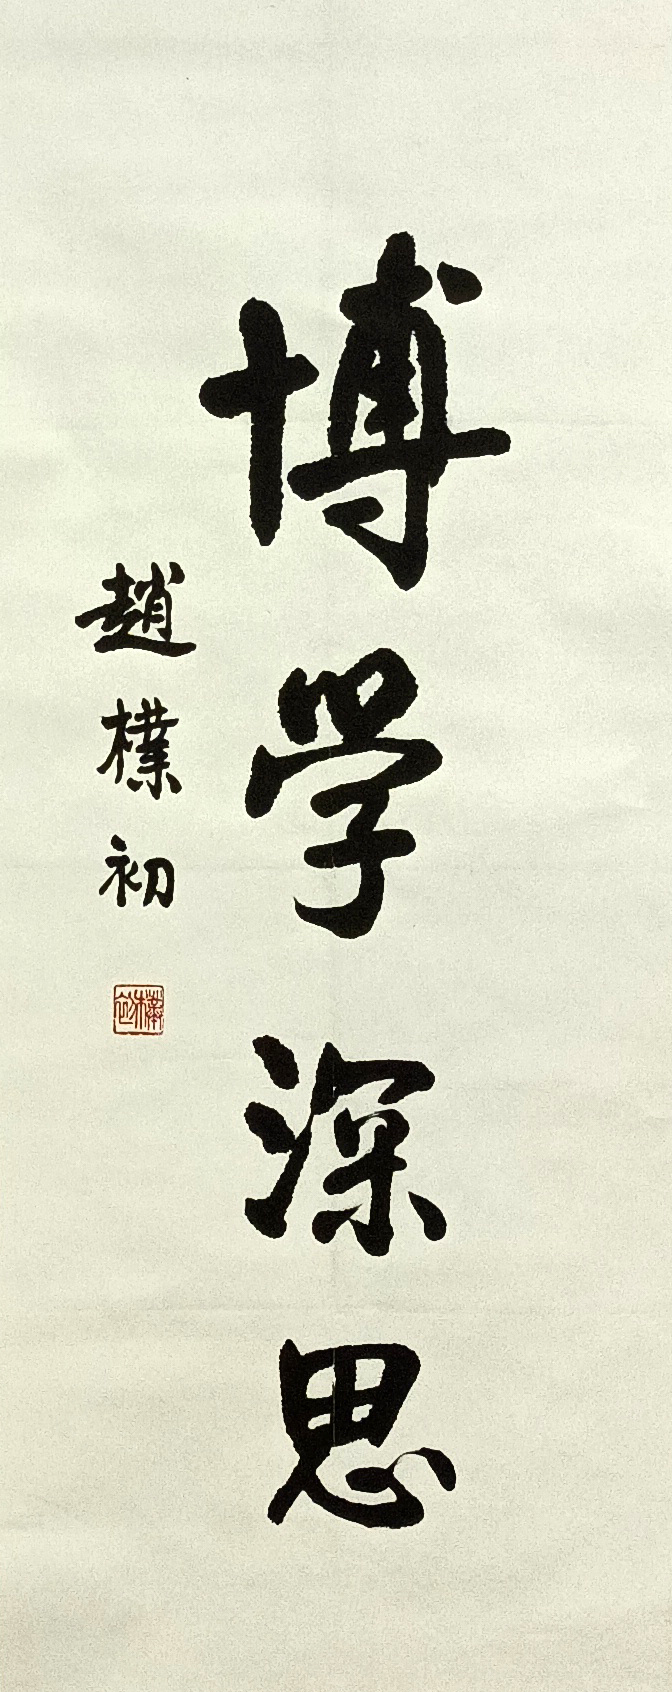 博學深思
趙樸初